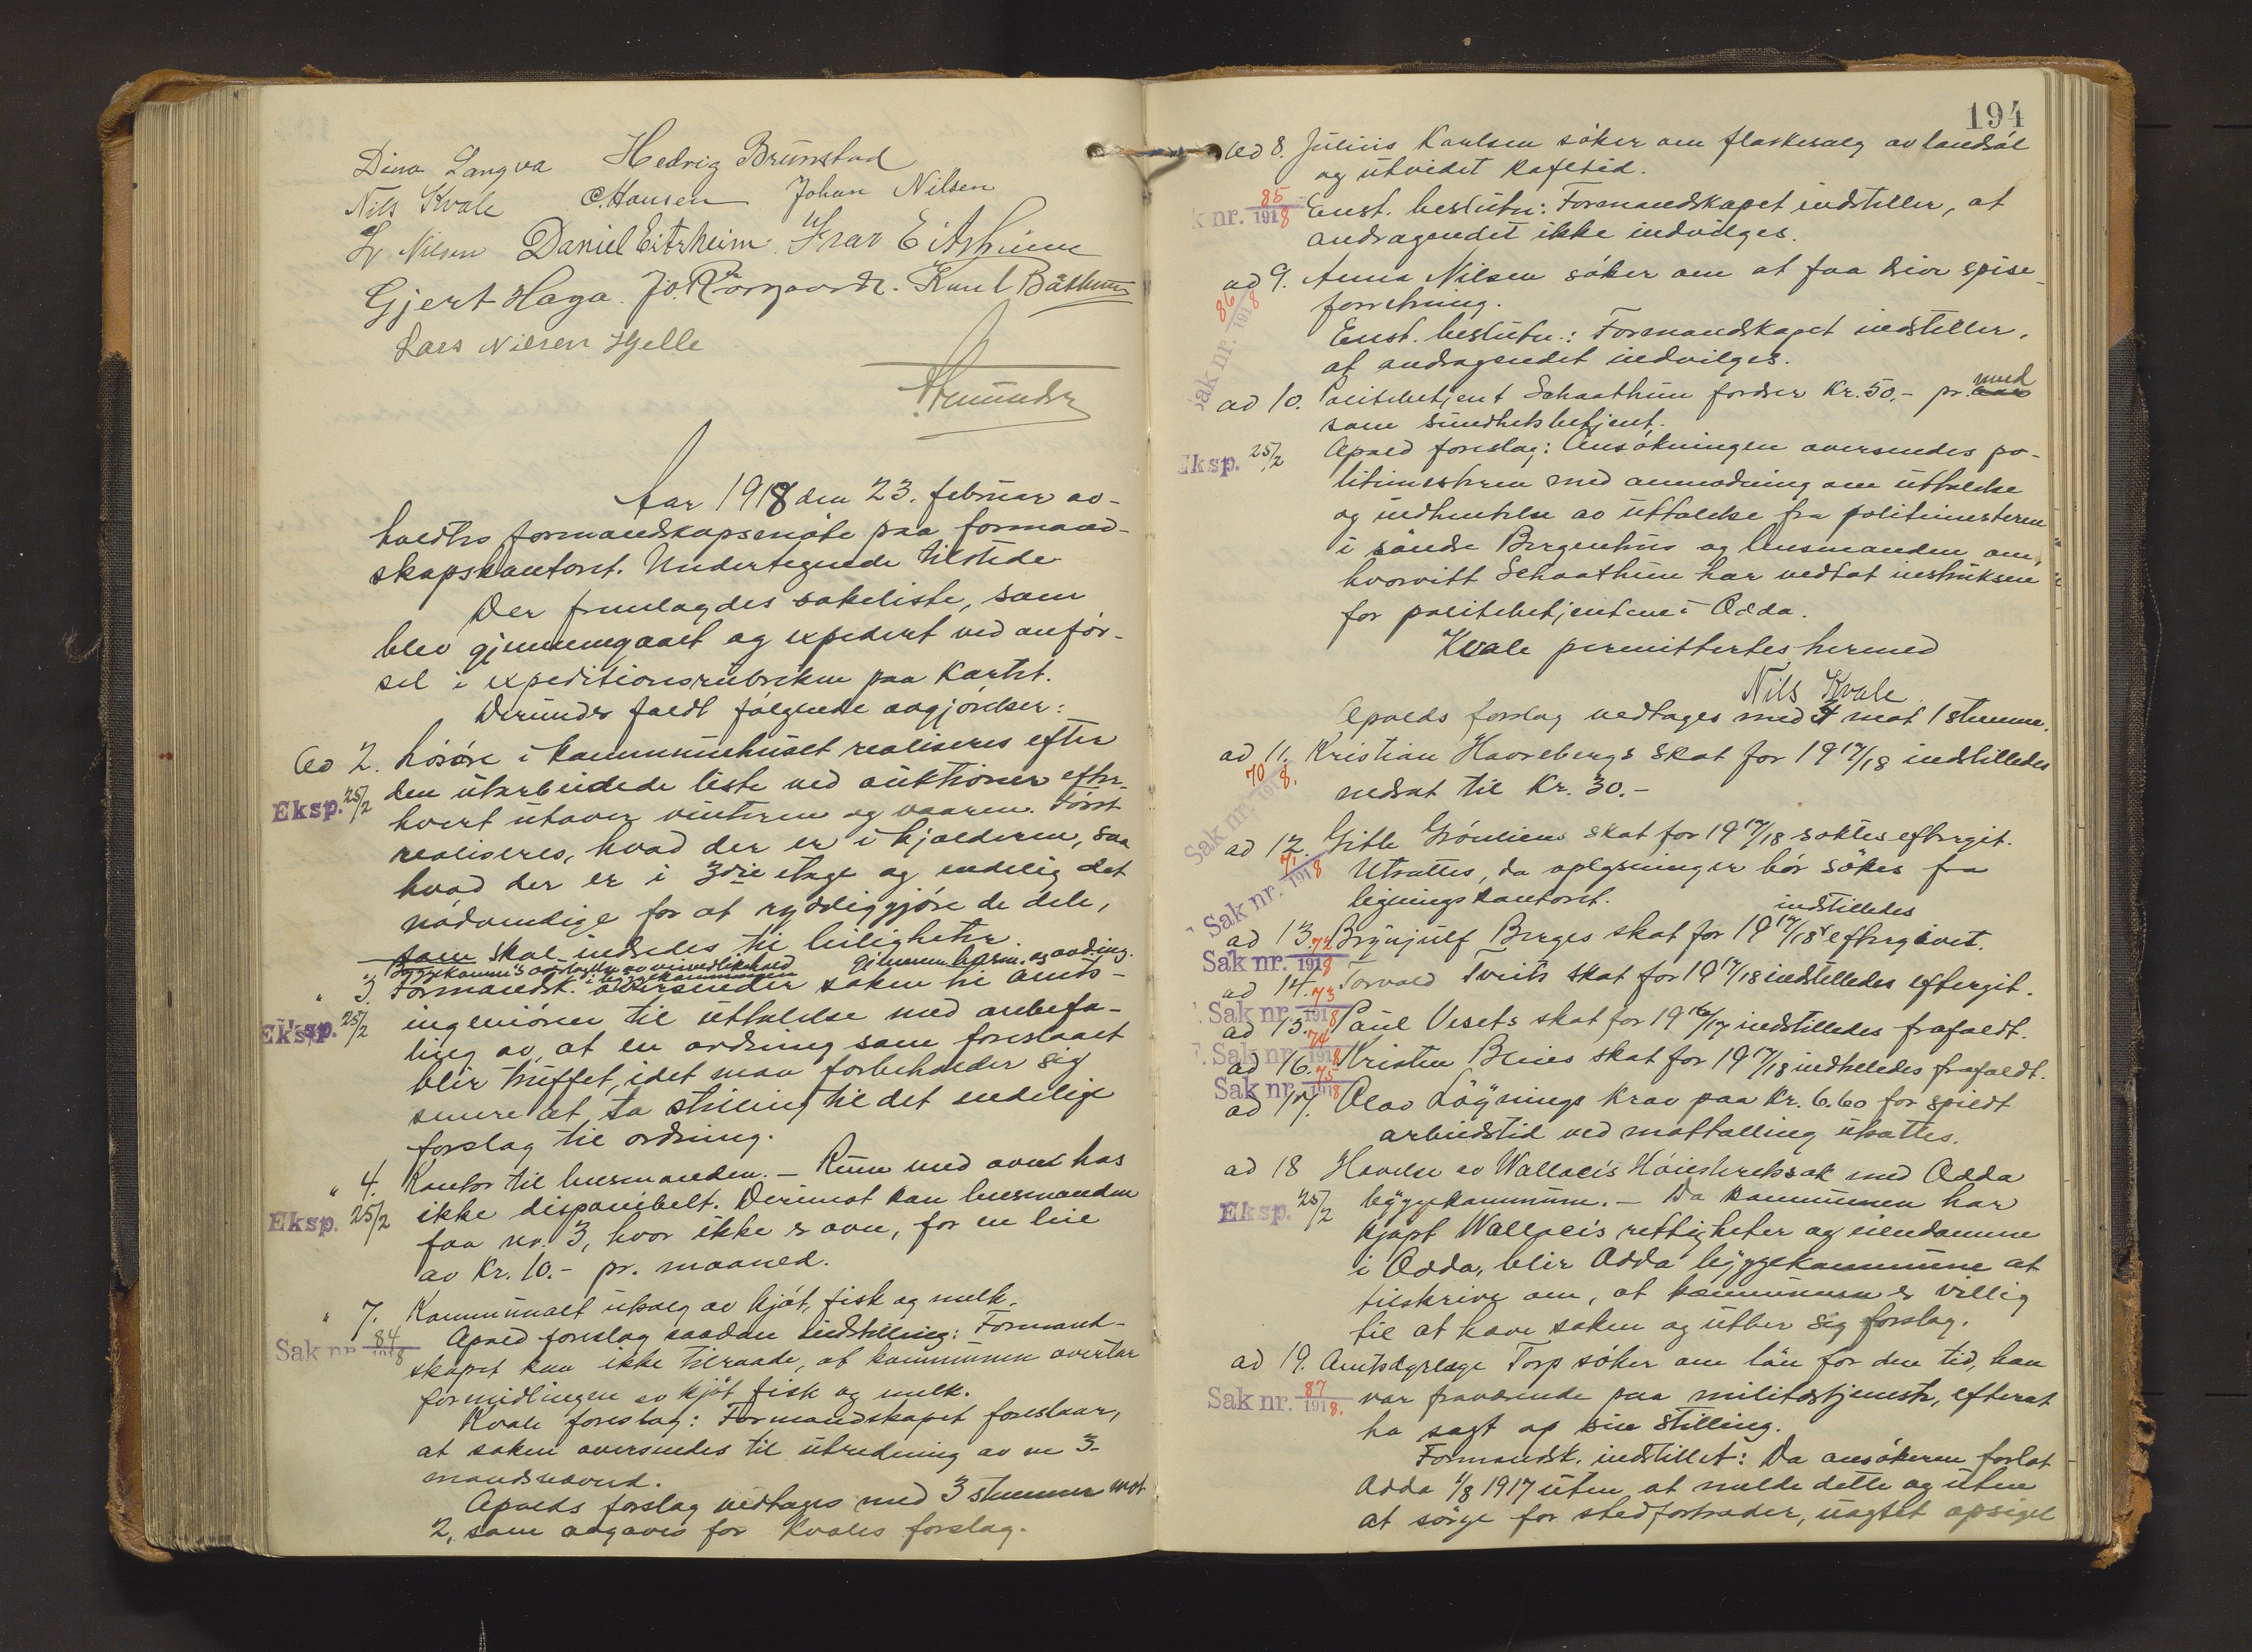 Dina Langva Hedvig Brunstad
Nils Kvale C. Hansen Johan Nilsen
L. Nilsen Daniel Eitrheim Ivar Eitrheim
Gjert Haga. Jo. Rørgaard. Knut Båstun
Lars Nilsen Hjelle
Aar 1918 den 23. februar av-
holdtes formandskapsmøte paa formand-
skapskontoret. Undertegnede tilstede
Der fremlagdes sakeliste, som
blev gjennemgaaet og expedert ved anfør-
sel i expeditionsrubriken paa kartet.
Derunder faldt følgende avgjørelser:
Ad 2. Løsøre i kommunehuset realiseres efter
Eksp. 25/2 den utarbeidede liste ved auktioner efter-
hvert utover vinteren og vaaren. Først
realiseres, hvad der er i kjælderen, saa
hvad der er i 3die etage og endelig det
nødvendige for at ryddiggjøre de dele,
som skal indredes til leiligheter.
Byggekomm's overtagelse av veivedlikehold gjennem havn. og avding.
i byggekommunen
" 3. Formandsk. oversender saken til amts-
Eksp. 25/2 ingeniøren til uttalelse med anbefa-
ling av, at en ordning som foreslaaet
blir truffet, idet man forbeholder sig
senere at ta stilling til det endelige
forslag til ordning.
" 4. Kontor til lensmanden. – Rum med ovn has
Eksp. 25/2 ikke disponibelt. Derimot kan lensmanden
faa nr. 3, hvor ikke er ovn, for en leie
av Kr. 10.- pr. maaned.
" 7. Kommunalt utsalg av kjøt, fisk og melk.
Sak nr. 84/1918 Apold foreslog saadan indstilling: Formand-
skapet kan ikke tilraade, at kommunen overtar
formidlingen av kjøt, fisk og melk.
Kvale foreslog: Formandskapet foreslaar,
at saken oversendes til utredning av en 3-
mandsnævnd.
Apolds forslag vedtages med 3 stemmer mot
2, som avgaves for Kvales forslag.
194
ad 8. Julius Karlsen søker om flaskesalg av landsøl
og utvidet kafetid.
k nr. 85/1918 Enst. beslutn: Formandskapet indstiller, at
andragendet ikke indvilges.
ad 9. Anna Nilsen søker om at faa drive spise-
Sak nr. 86/1918 forretning.
Enst. beslutn.: Formandskapet indstiller,
at andragendet indvilges.
ad 10. Politibetjent Schaathun fordrer Kr. 50.- pr. aar mnd
som sundhetsbetjent.
Eksp. 25/2 Apold foreslog: Ansøkningen oversendes po-
litimesteren med anmodning om uttalelse
og indhentelse av uttalelse fra politimesteren
i søndre Bergenhus og lensmanden om,
hvorvitt Schaathun har vedtat instruksen
for politibetjentene i Odda.
Kvale permittertes hermed
Nils Kvale
Apolds forslag vedtages med 4 mot 1 stemme.
ad 11. Kristian Havrebergs skat for 1917/18 indstilledes
Sak nr. 70/1918. nedsat til Kr. 30.-
ad 12. Gitle Grønliens skat for 1917/18 søktes eftergit.
Sak nr. 71/1918 Utsattes, da oplysninger bør søkes fra
ligningskontoret.
indstilledes
ad 13. Brynjulf Berges skat for 1917/18 eftergivet.
Sak nr. 72/1918
ad 14. Torvald Tveits skat for 1917/18 indstilledes eftergit.
Sak nr. 73/1918
ad 15. Paul Vesets skat for 1916/17 indstilledes frafaldt.
Sak nr. 74/1918
ad 16. Kristen Beies skat for 1917/18 indstilledes frafaldt.
Sak nr. 75/1918
ad 17. Olav Løynings krav paa Kr. 6.60 for spildt
arbeidstid ved mattælling utsattes.
ad 18 Hævelse av Wallaci's Høiesteretssak med Odda
Eksp. 25/2 byggekommune. – Da kommunen har
kjøpt Wallaci's rettigheter og eiendomme
i Odda, blir Odda byggekommune at
tilskrive om, at kommunen er villig
til at hæve saken og utber sig forslag.
ad 19. Amtsdyrlæge Torp søker om løn for den tid, han
Sak nr. 87/1918. var fraværende paa militærtjeneste, efterat
ha sagt op sin stilling.
Formandsk. indstillet: Da ansøkeren forlot
Odda 1/8 1917 uten at melde dette og uten
at sørge for stedfortræder, uagtet opsigel